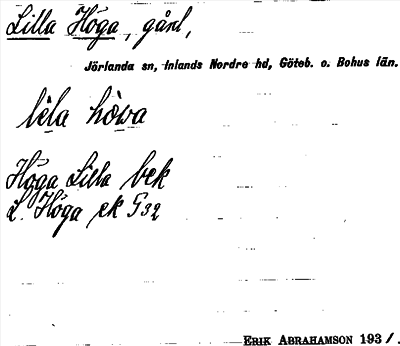 Lilla Höga, gård,
Jörlanda sn, Inlands Nordre hd, Göteb. o. Bohus län.
lèla hòwa
Höga Lilla bek
L. Höga ek G32
ERIK ABRAHAMSON 193/.